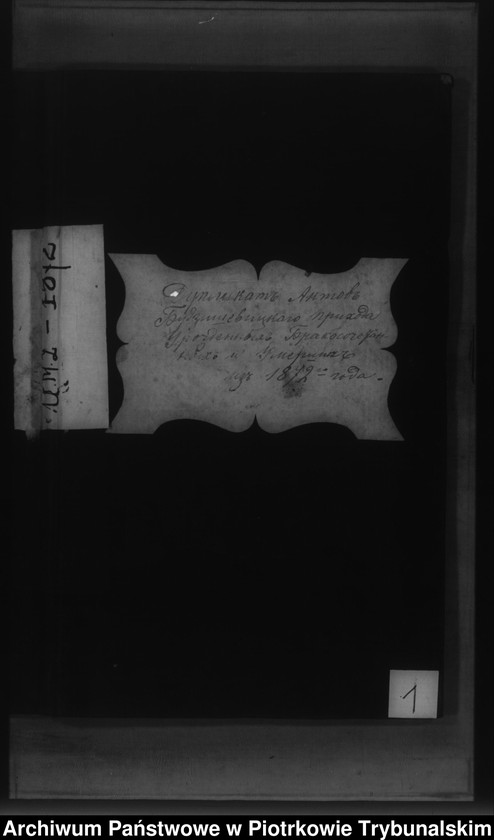 Дупликатъ Актовъ
Будзишевицкаго прихода
Урожденныхъ Бракосочетан
ныхъ и Умершихъ
года.
1
Archiwum Państwowe w Piotrkowie Trybunalskim